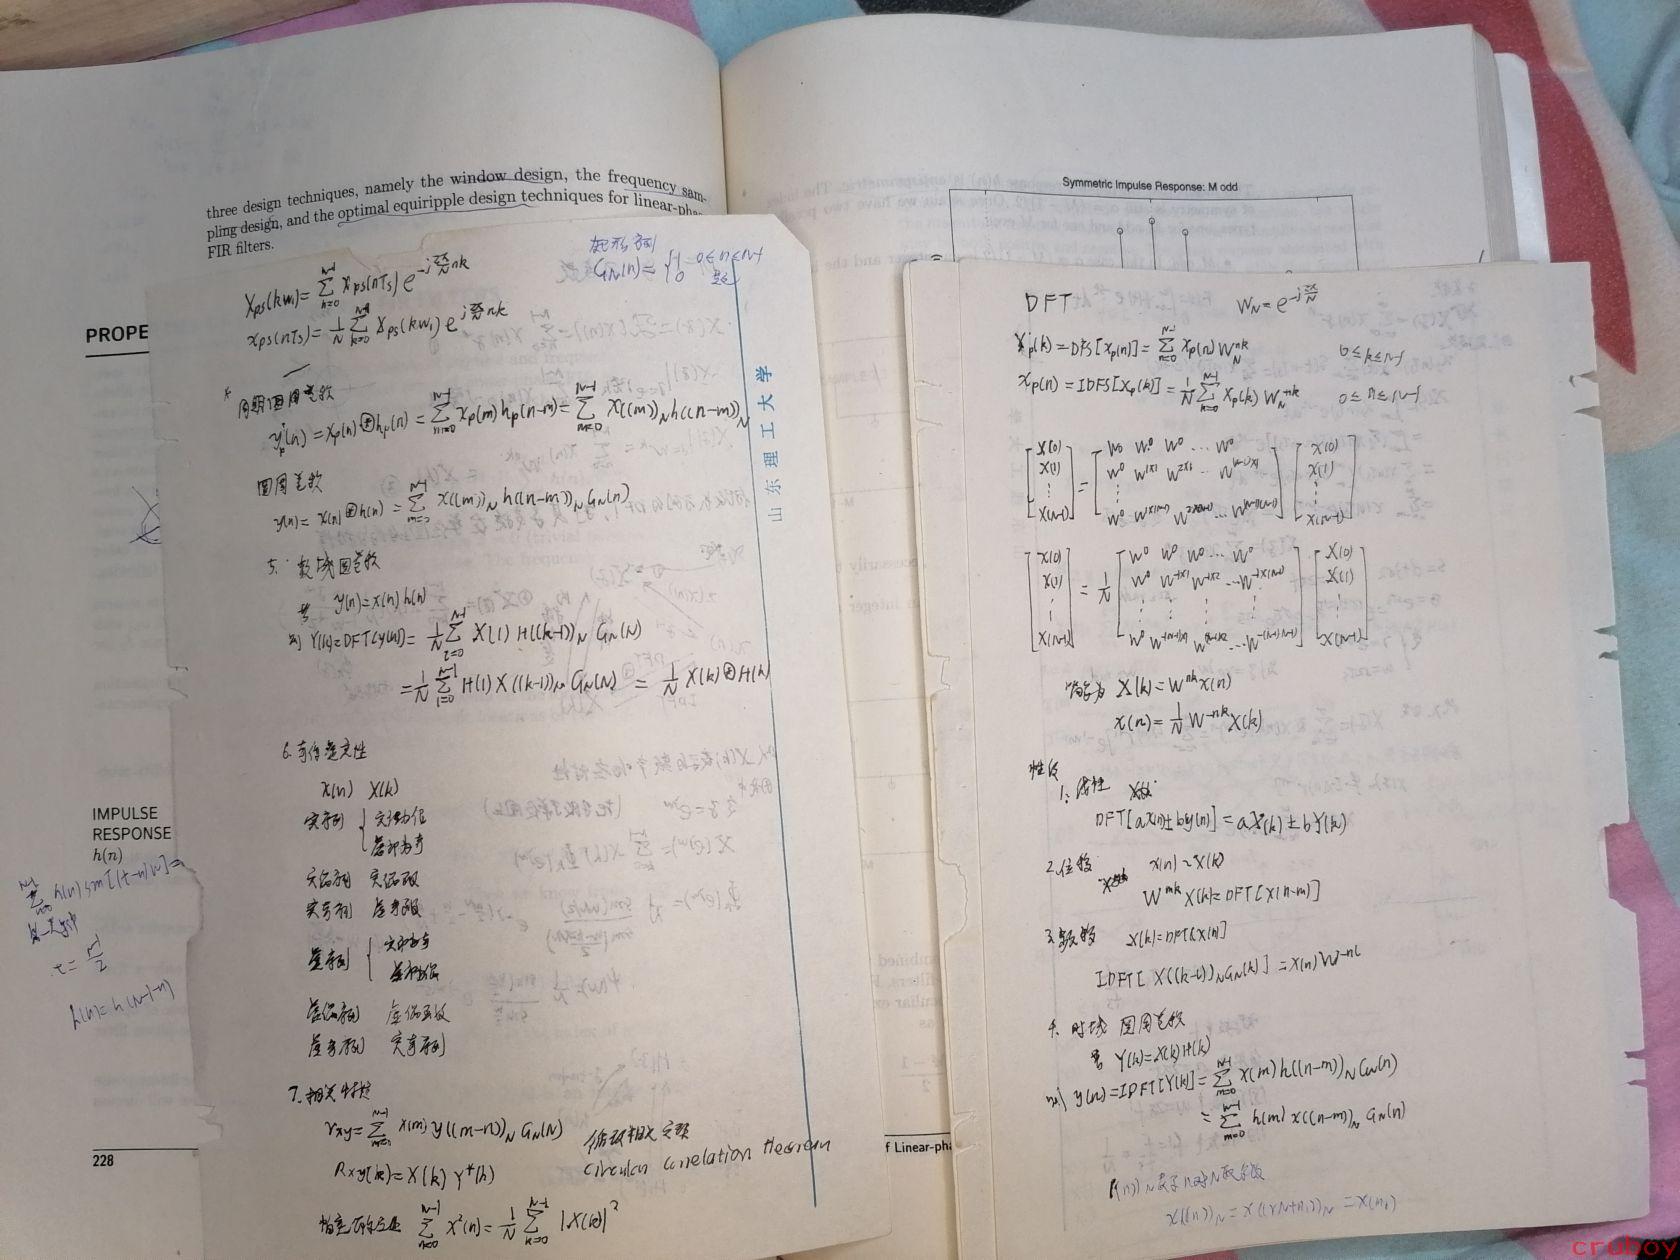 three design techniques, namely the window design, the frequency sam-
pling design, and the optimal equiripple design techniques for linear-pha
FIR filters.
PROPE
IMPULSE
RESPONSE
h(n)
h(n) = h(N-1-n)
228
矩形序列
G_N(n) = { 1 0≤n≤N-1
0 其它
X_ps(kw₁) = Σ_{n=0}^{N-1} x_ps(nTs) e^{-j(2π/N)nk}
x_ps(nTs) = 1/N Σ_{k=0}^{N-1} X_ps(kw₁) e^{j(2π/N)nk}
* 周期圆周卷积
y_p(n) = x_p(n) ⊛ h_p(n) = Σ_{m=0}^{N-1} x_p(m) h_p(n-m) = Σ_{m=0}^{N-1} x((m))_N h((n-m))_N
圆周卷积
y(n) = x(n) ⊛ h(n) = Σ_{m=0}^{N-1} x((m))_N h((n-m))_N G_N(n)
5. 频域圆卷积
若 y(n) = x(n) h(n)
则 Y(k) = DFT[y(n)] = 1/N Σ_{l=0}^{N-1} X(l) H((k-l))_N G_N(N)
= 1/N Σ_{l=0}^{N-1} H(l) X((k-l))_N G_N(N) = 1/N X(k) ⊛ H(k)
6. 奇偶虚实性
x(n) X(k)
实序列 { 实部为偶
虚部为奇
实偶序列 实偶函数
实奇序列 虚奇函数
虚序列 { 实部为奇
虚部为偶
虚偶序列 虚偶函数
虚奇序列 实奇序列
7. 相关特性
r_xy = Σ_{m=0}^{N-1} x(m) y((m-n))_N G_N(N) 循环相关定理
R_xy(k) = X(k) Y*(k) circular correlation theorem
帕塞瓦尔定理 Σ_{n=0}^{N-1} x²(n) = 1/N Σ_{k=0}^{N-1} |X(k)|²
山东理工大学
Symmetric Impulse Response: M odd
DFT W_N = e^{-j(2π/N)}
X_p(k) = DFS[x_p(n)] = Σ_{n=0}^{N-1} x_p(n) W_N^{nk} 0≤k≤N-1
x_p(n) = IDFS[X_p(k)] = 1/N Σ_{k=0}^{N-1} X_p(k) W_N^{-nk} 0≤n≤N-1
[X(0) X(1) ⋮ X(N-1)] = [W⁰ W⁰ W⁰ ... W⁰
W⁰ W^{1×1} W^{2×1} ... W^{(N-1)×1}
⋮
W⁰ W^{1×(N-1)} W^{2×(N-1)} ... W^{(N-1)(N-1)}] [x(0) x(1) ⋮ x(N-1)]
[x(0) x(1) ⋮ x(N-1)] = 1/N [W⁰ W⁰ W⁰ ... W⁰
W⁰ W^{-1×1} W^{-1×2} ... W^{-1×(N-1)}
⋮
W⁰ W^{-(N-1)×1} W^{-(N-1)×2} ... W^{-(N-1)(N-1)}] [X(0) X(1) ⋮ X(N-1)]
简写为 X(k) = W^{nk} x(n)
x(n) = 1/N W^{-nk} X(k)
性质
1. 线性
DFT[ax(n) ± by(n)] = aX(k) ± bY(k)
2. 位移 x(n) ~ X(k)
W^{mk} X(k) = DFT[x(n-m)]
3. 频移 X(k) = DFT[x(n)]
IDFT[X((k-l))_N G_N(k)] = x(n) W^{-nl}
4. 时域 圆周卷积
若 Y(k) = X(k) H(k)
则 y(n) = IDFT[Y(k)] = Σ_{m=0}^{N-1} x(m) h((n-m))_N G_N(n)
= Σ_{m=0}^{N-1} h(m) x((n-m))_N G_N(n)
((n))_N 表示 n对N取余数
x((n))_N = x((rN+n₁))_N = x(n₁)
f Linear-pha
cruboy